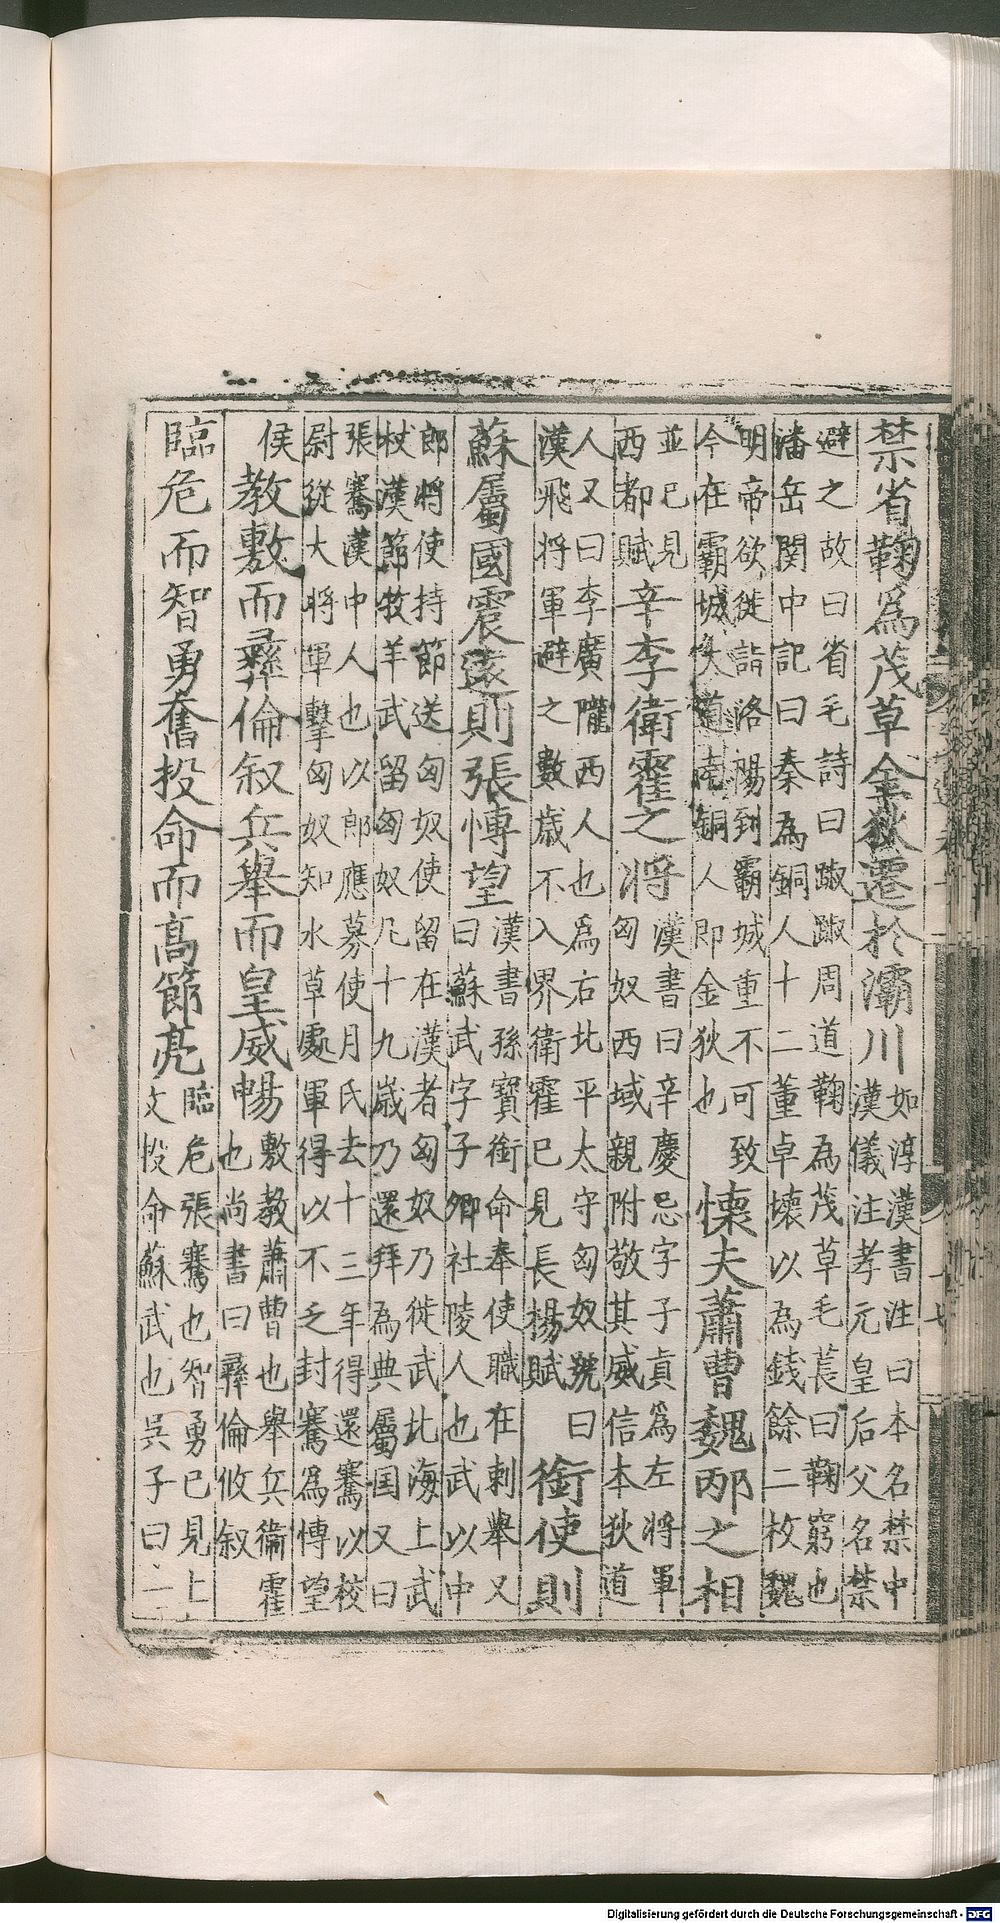 禁省鞠爲茂草金狄遷於灞川
如淳漢書注曰本名禁中
漢儀注孝元皇后父名禁
避之故曰省毛詩曰踧踧周道鞠為茂草毛萇曰鞠窮也
潘岳関中記曰秦為銅人十二董卓壞以為錢餘二枚魏
明帝欲徙詣洛陽到霸城重不可致
今在霸城大道南銅人即金狄也
懐夫蕭曹魏邴之相
並已見
西都賦
辛李衛霍之将
漢書曰辛慶忌字子貞爲左将軍
匈奴西域親附敬其威信本狄道
人又曰李廣隴西人也爲右北平太守匈奴號曰
漢飛将軍避之數歳不入界衛霍已見長楊賦
銜使則
蘇屬國震遠則張愽望
漢書孫寶銜命奉使職在剌舉又
曰蘇武字子卿社陵人也武以中
郎将使持節送匈奴使留在漢者匈奴乃徙武北海上武
杖漢節牧羊武留匈奴凡十九歳乃還拜為典屬国又曰
張騫漢中人也以郎應募使月氏去十三年得還騫以校
尉從大将軍擊匈奴知水草處軍得以不乏封騫爲愽望
侯
教敷而彝倫叙兵舉而皇威暢
敷教蕭曹也舉兵衛霍
也尚書曰彝倫攸叙
臨危而智勇奮投命而髙節亮
臨危張騫也智勇已見上
文投命蘇武也呉子曰一
Digitalisierung gefördert durch die Deutsche Forschungsgemeinschaft - DFG